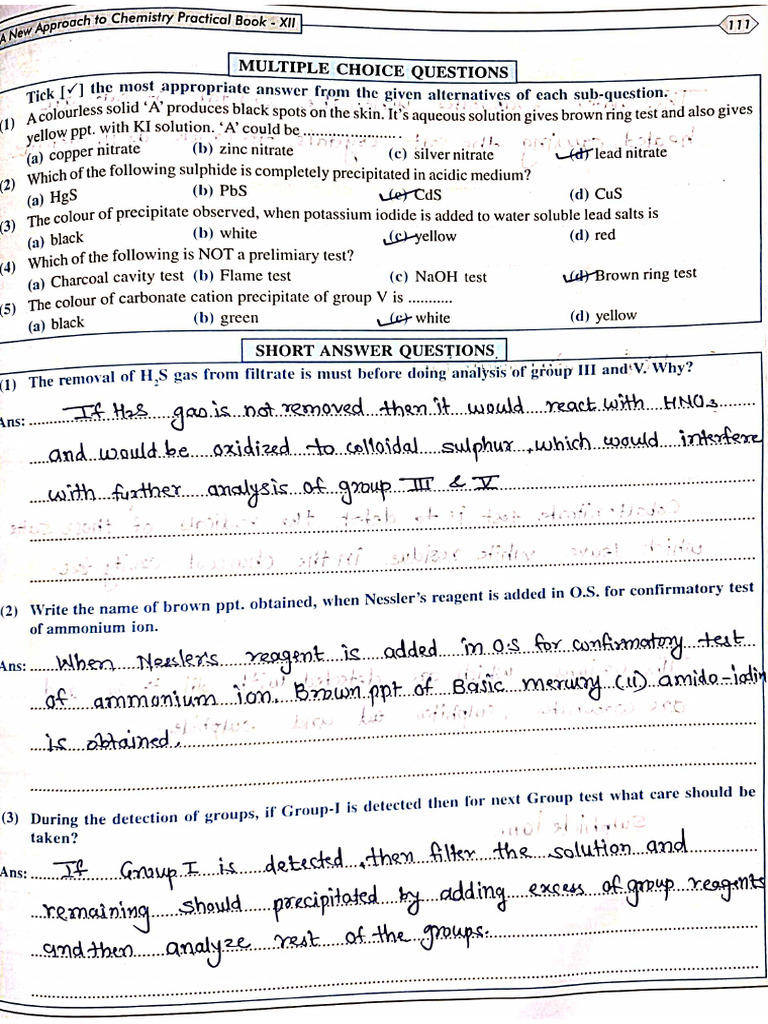 A New Approach to Chemistry Practical Book - XII
111
MULTIPLE CHOICE QUESTIONS
Tick [✓] the most appropriate answer from the given alternatives of each sub-question.
(1) A colourless solid 'A' produces black spots on the skin. It's aqueous solution gives brown ring test and also gives
yellow ppt. with KI solution. 'A' could be ........................
(a) copper nitrate (b) zinc nitrate (c) silver nitrate (d) lead nitrate
(2) Which of the following sulphide is completely precipitated in acidic medium?
(a) HgS (b) PbS (c) CdS (d) CuS
(3) The colour of precipitate observed, when potassium iodide is added to water soluble lead salts is
(a) black (b) white (c) yellow (d) red
(4) Which of the following is NOT a prelimiary test?
(a) Charcoal cavity test (b) Flame test (c) NaOH test (d) Brown ring test
(5) The colour of carbonate cation precipitate of group V is ...........
(a) black (b) green (c) white (d) yellow
SHORT ANSWER QUESTIONS
(1) The removal of H₂S gas from filtrate is must before doing analysis of group III and V. Why?
Ans: If H2S gas is not removed then it would react with HNO3
and would be oxidized to colloidal sulphur, which would interfere
with further analysis of group III & V
(2) Write the name of brown ppt. obtained, when Nessler's reagent is added in O.S. for confirmatory test
of ammonium ion.
Ans: When Nessler's reagent is added in O.S for confirmatory test
of ammonium ion. Brown ppt of Basic mercury (II) amido-iodin
is obtained.
(3) During the detection of groups, if Group-I is detected then for next Group test what care should be
taken?
Ans: If Group I is detected, then filter the solution and
remaining should precipitated by adding excess of group reagents
and then analyze rest of the groups.